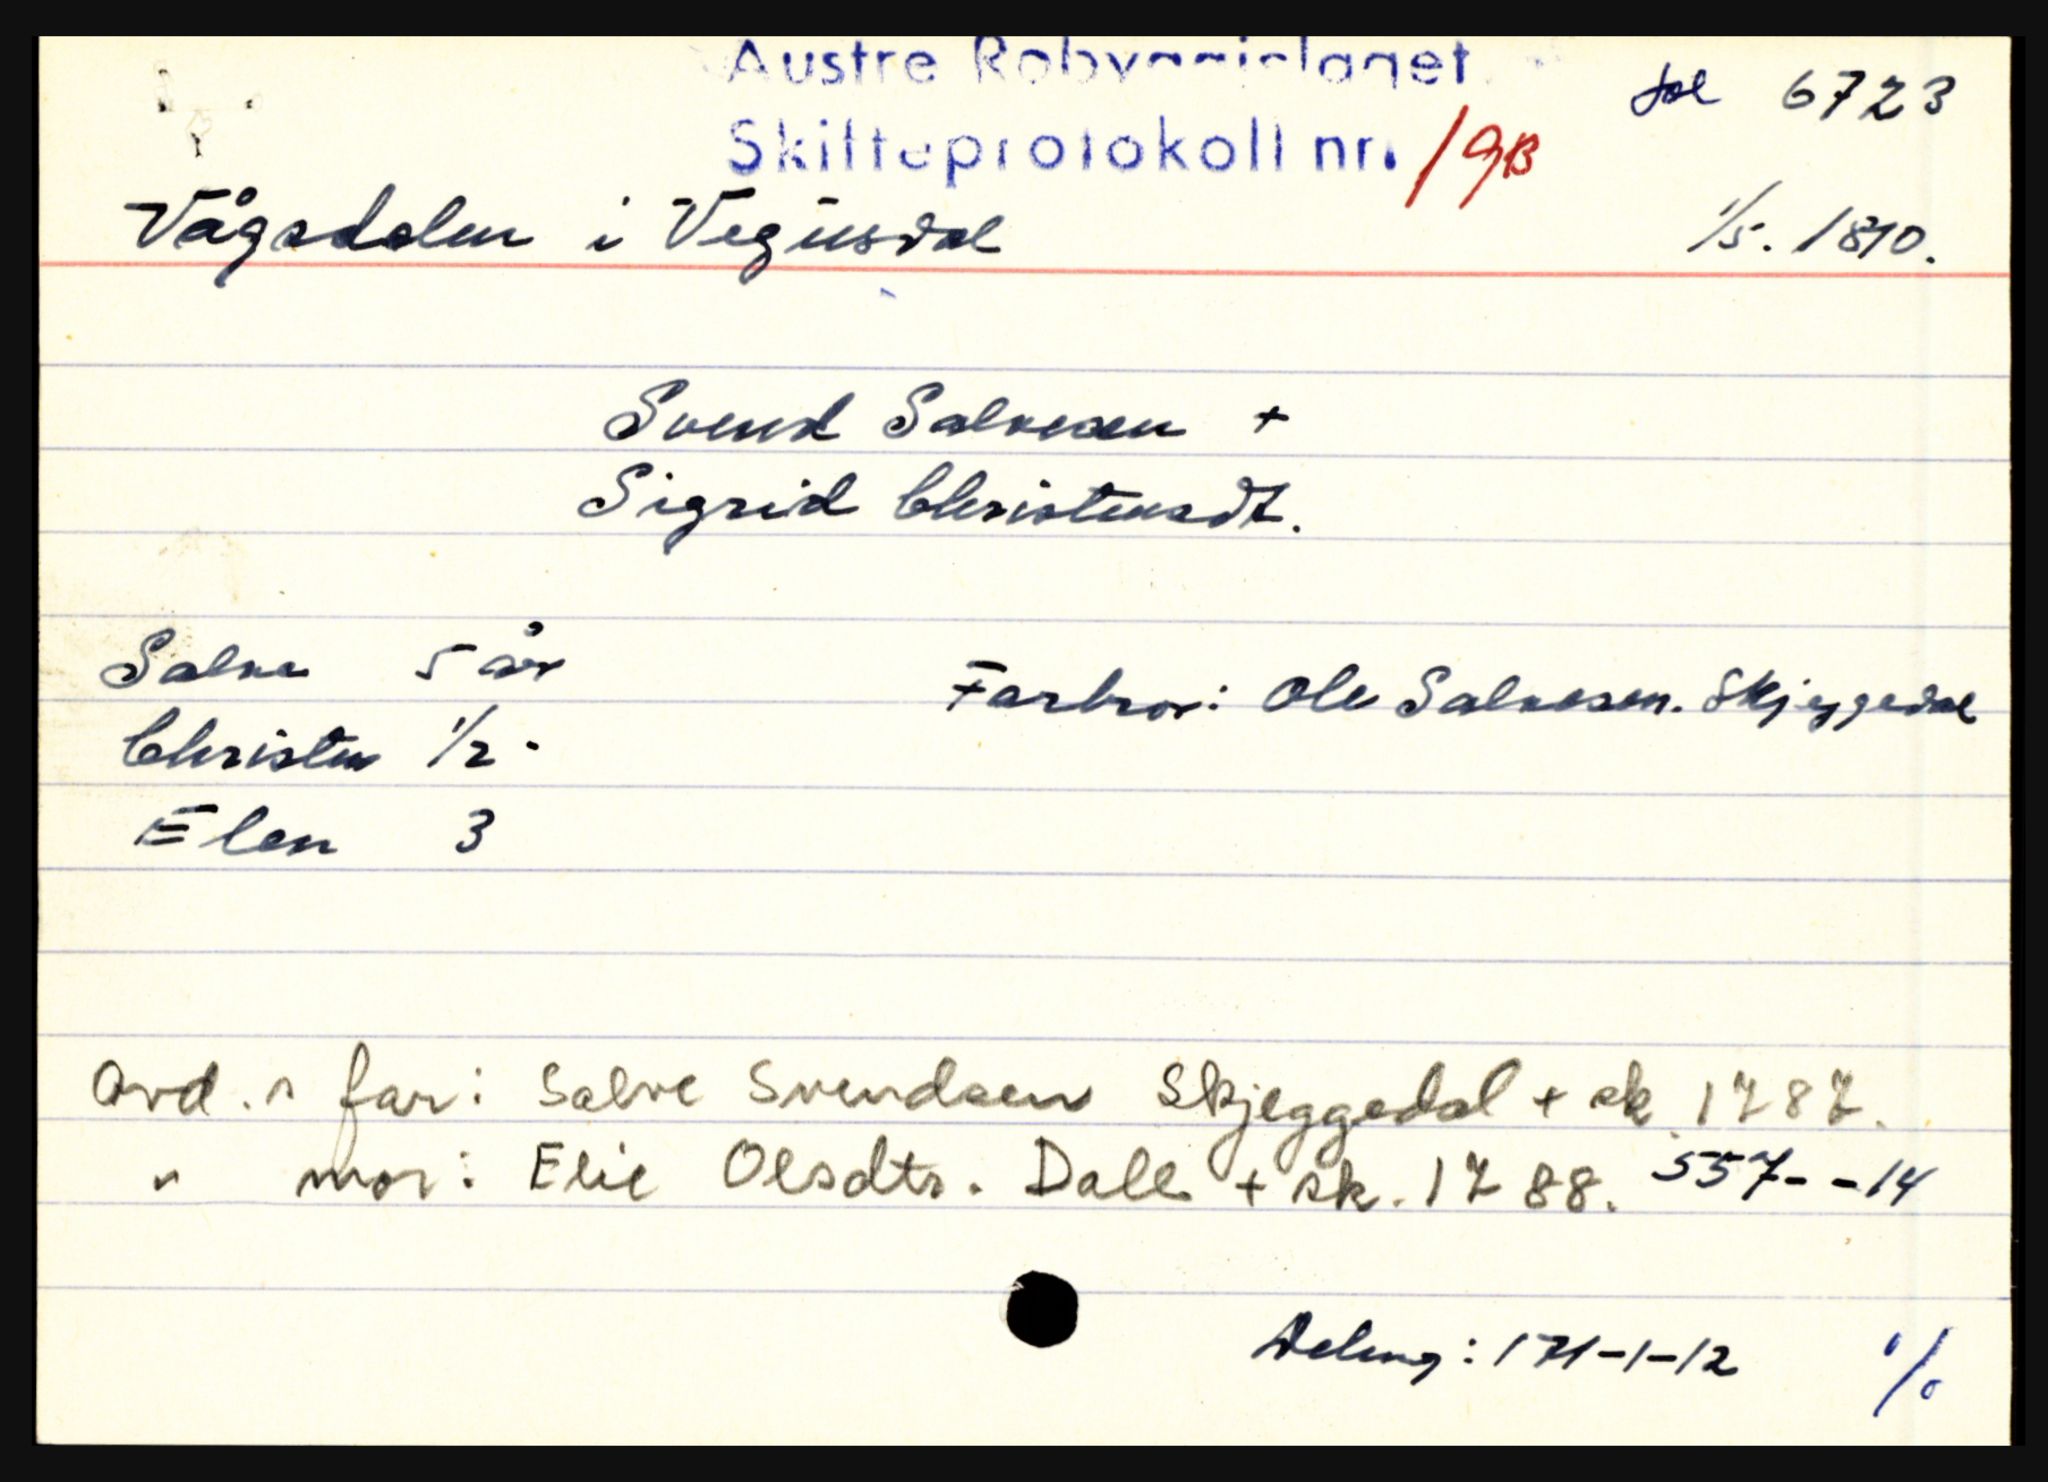 Austre Robyggjelaget
Skifteprotokoll nr. 19B
fol 6723
Vågsdalen i Vegusdal 1/5. 1810.
Svend Salvesen +
Sigrid Christensdt.
Salve 5 år
Farbror: Ole Salvesen. Skjeggedal
Christen 1/2 -
Elen 3
Avd. s far: Salve Svendsen Skjeggedal + sk 1787.
" mor: Elie Olsdtr. Dale + sk. 1788. 557 - - 14
Deling: 171-1-12